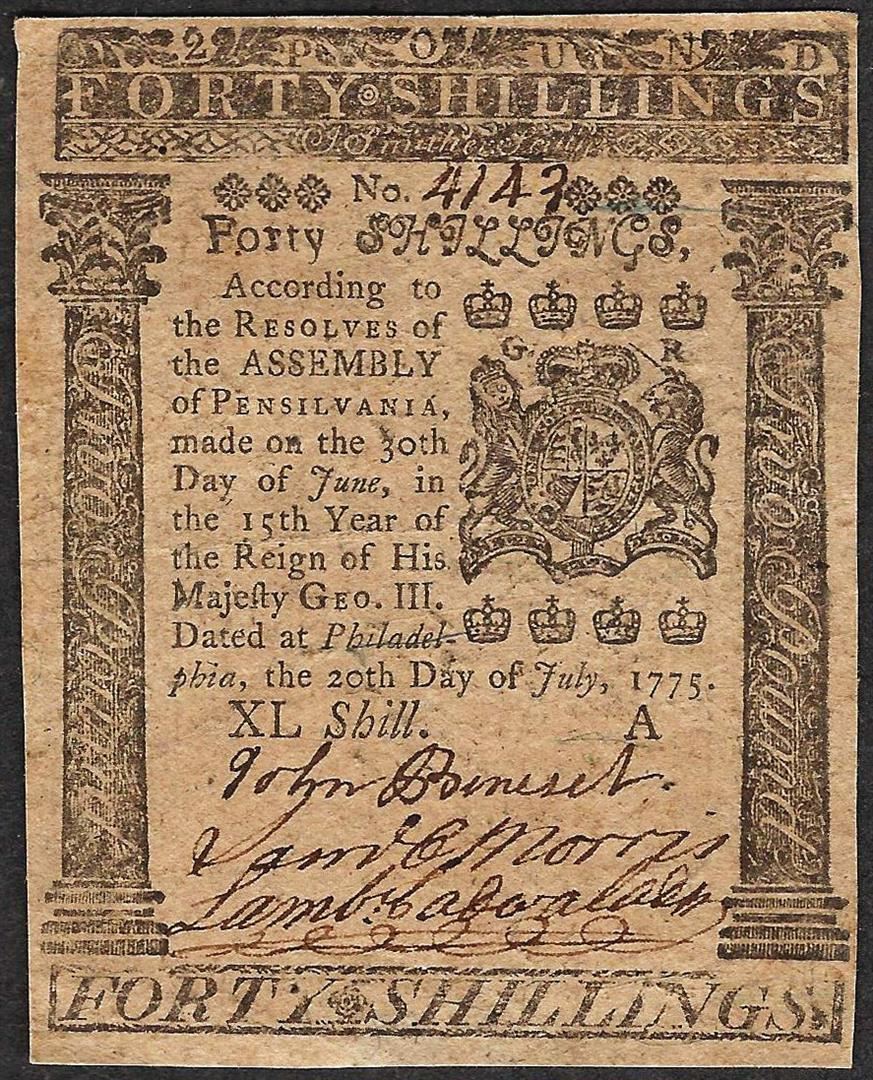 2 POUND
FORTY SHILLINGS
J. Smither Sculp.
No. 4143
Forty SHILLINGS,
According to
the RESOLVES of
the ASSEMBLY
of PENSILVANIA,
made on the 30th
Day of June, in
the 15th Year of
the Reign of His
Majeſty GEO. III.
Dated at Philadel-
phia, the 20th Day of July, 1775.
G. R
XL Shill. A
John Benezet.
Sam.l C Morris
Lamb.t Cadwalader
Two Pound
Two Pound
FORTY SHILLINGS.